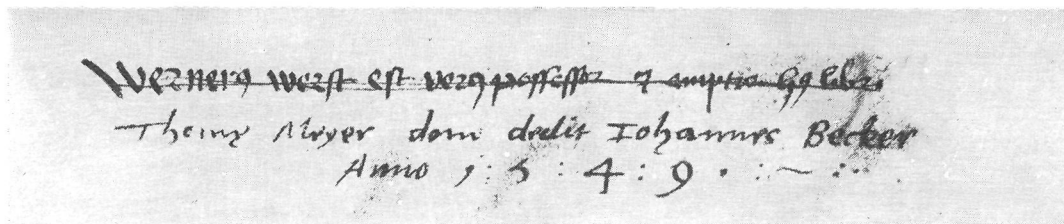 Wernerꝯ werst est verꝯ possessor et emptor hꝯ libri
Thome Meyer dom dedit Iohannes Becker
Anno 1 : 5 : 4 : 9 . : ~ : ·